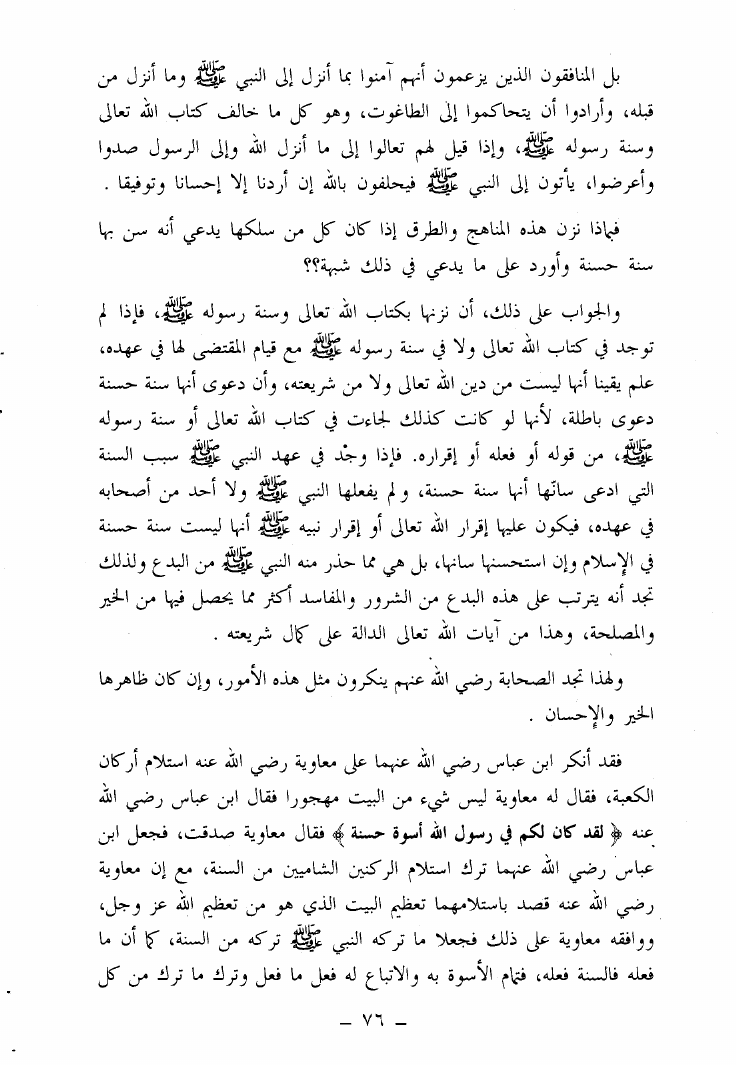 بل المنافقون الذين يزعمون أنهم آمنوا بما أنزل إلى النبي ﷺ وما أنزل من
قبله، وأرادوا أن يتحاكموا إلى الطاغوت، وهو كل ما خالف كتاب الله تعالى
وسنة رسوله ﷺ، وإذا قيل لهم تعالوا إلى ما أنزل الله وإلى الرسول صدوا
وأعرضوا، يأتون إلى النبي ﷺ فيحلفون بالله إن أردنا إلا إحسانا وتوفيقا .
فبماذا نزن هذه المناهج والطرق إذا كان كل من سلكها يدعي أنه سن بها
سنة حسنة وأورد على ما يدعي في ذلك شبهة؟؟
والجواب على ذلك، أن نزنها بكتاب الله تعالى وسنة رسوله ﷺ، فإذا لم
توجد في كتاب الله تعالى ولا في سنة رسوله ﷺ مع قيام المقتضى لها في عهده،
علم يقينا أنها ليست من دين الله تعالى ولا من شريعته، وأن دعوى أنها سنة حسنة
دعوى باطلة، لأنها لو كانت كذلك لجاءت في كتاب الله تعالى أو سنة رسوله
ﷺ، من قوله أو فعله أو إقراره. فإذا وجْد في عهد النبي ﷺ سبب السنة
التي ادعى سانّها أنها سنة حسنة، ولم يفعلها النبي ﷺ ولا أحد من أصحابه
في عهده، فيكون عليها إقرار الله تعالى أو إقرار نبيه ﷺ أنها ليست سنة حسنة
في الإسلام وإن استحسنها سانها، بل هي مما حذر منه النبي ﷺ من البدع ولذلك
تجد أنه يترتب على هذه البدع من الشرور والمفاسد أكثر مما يحصل فيها من الخير
والمصلحة، وهذا من آيات الله تعالى الدالة على كمال شريعته .
ولهذا تجد الصحابة رضي الله عنهم ينكرون مثل هذه الأمور، وإن كان ظاهرها
الخير والإحسان .
فقد أنكر ابن عباس رضي الله عنهما على معاوية رضي الله عنه استلام أركان
الكعبة، فقال له معاوية ليس شيء من البيت مهجورا فقال ابن عباس رضي الله
عنه ﴿ لقد كان لكم في رسول الله أسوة حسنة ﴾ فقال معاوية صدقت، فجعل ابن
عباس رضي الله عنهما ترك استلام الركنين الشاميين من السنة، مع إن معاوية
رضي الله عنه قصد باستلامهما تعظيم البيت الذي هو من تعظيم الله عز وجل،
ووافقه معاوية على ذلك فجعلا ما تركه النبي ﷺ تركه من السنة، كما أن ما
فعله فالسنة فعله، فتمام الأسوة به والاتباع له فعل ما فعل وترك ما ترك من كل
– ٧٦ –